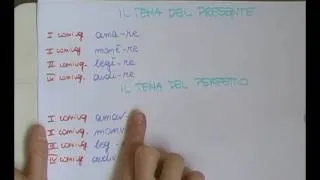 IL TEMA DEL PRESENTE
I coniug. ama-re
II coniug. monē-re
III coniug. legĕ-re
IV coniug. audi-re
IL TEMA DEL PERFETTO
I coniug. amav-
II coniug. monu-
III coniug. leg-
IV coniug. audiv